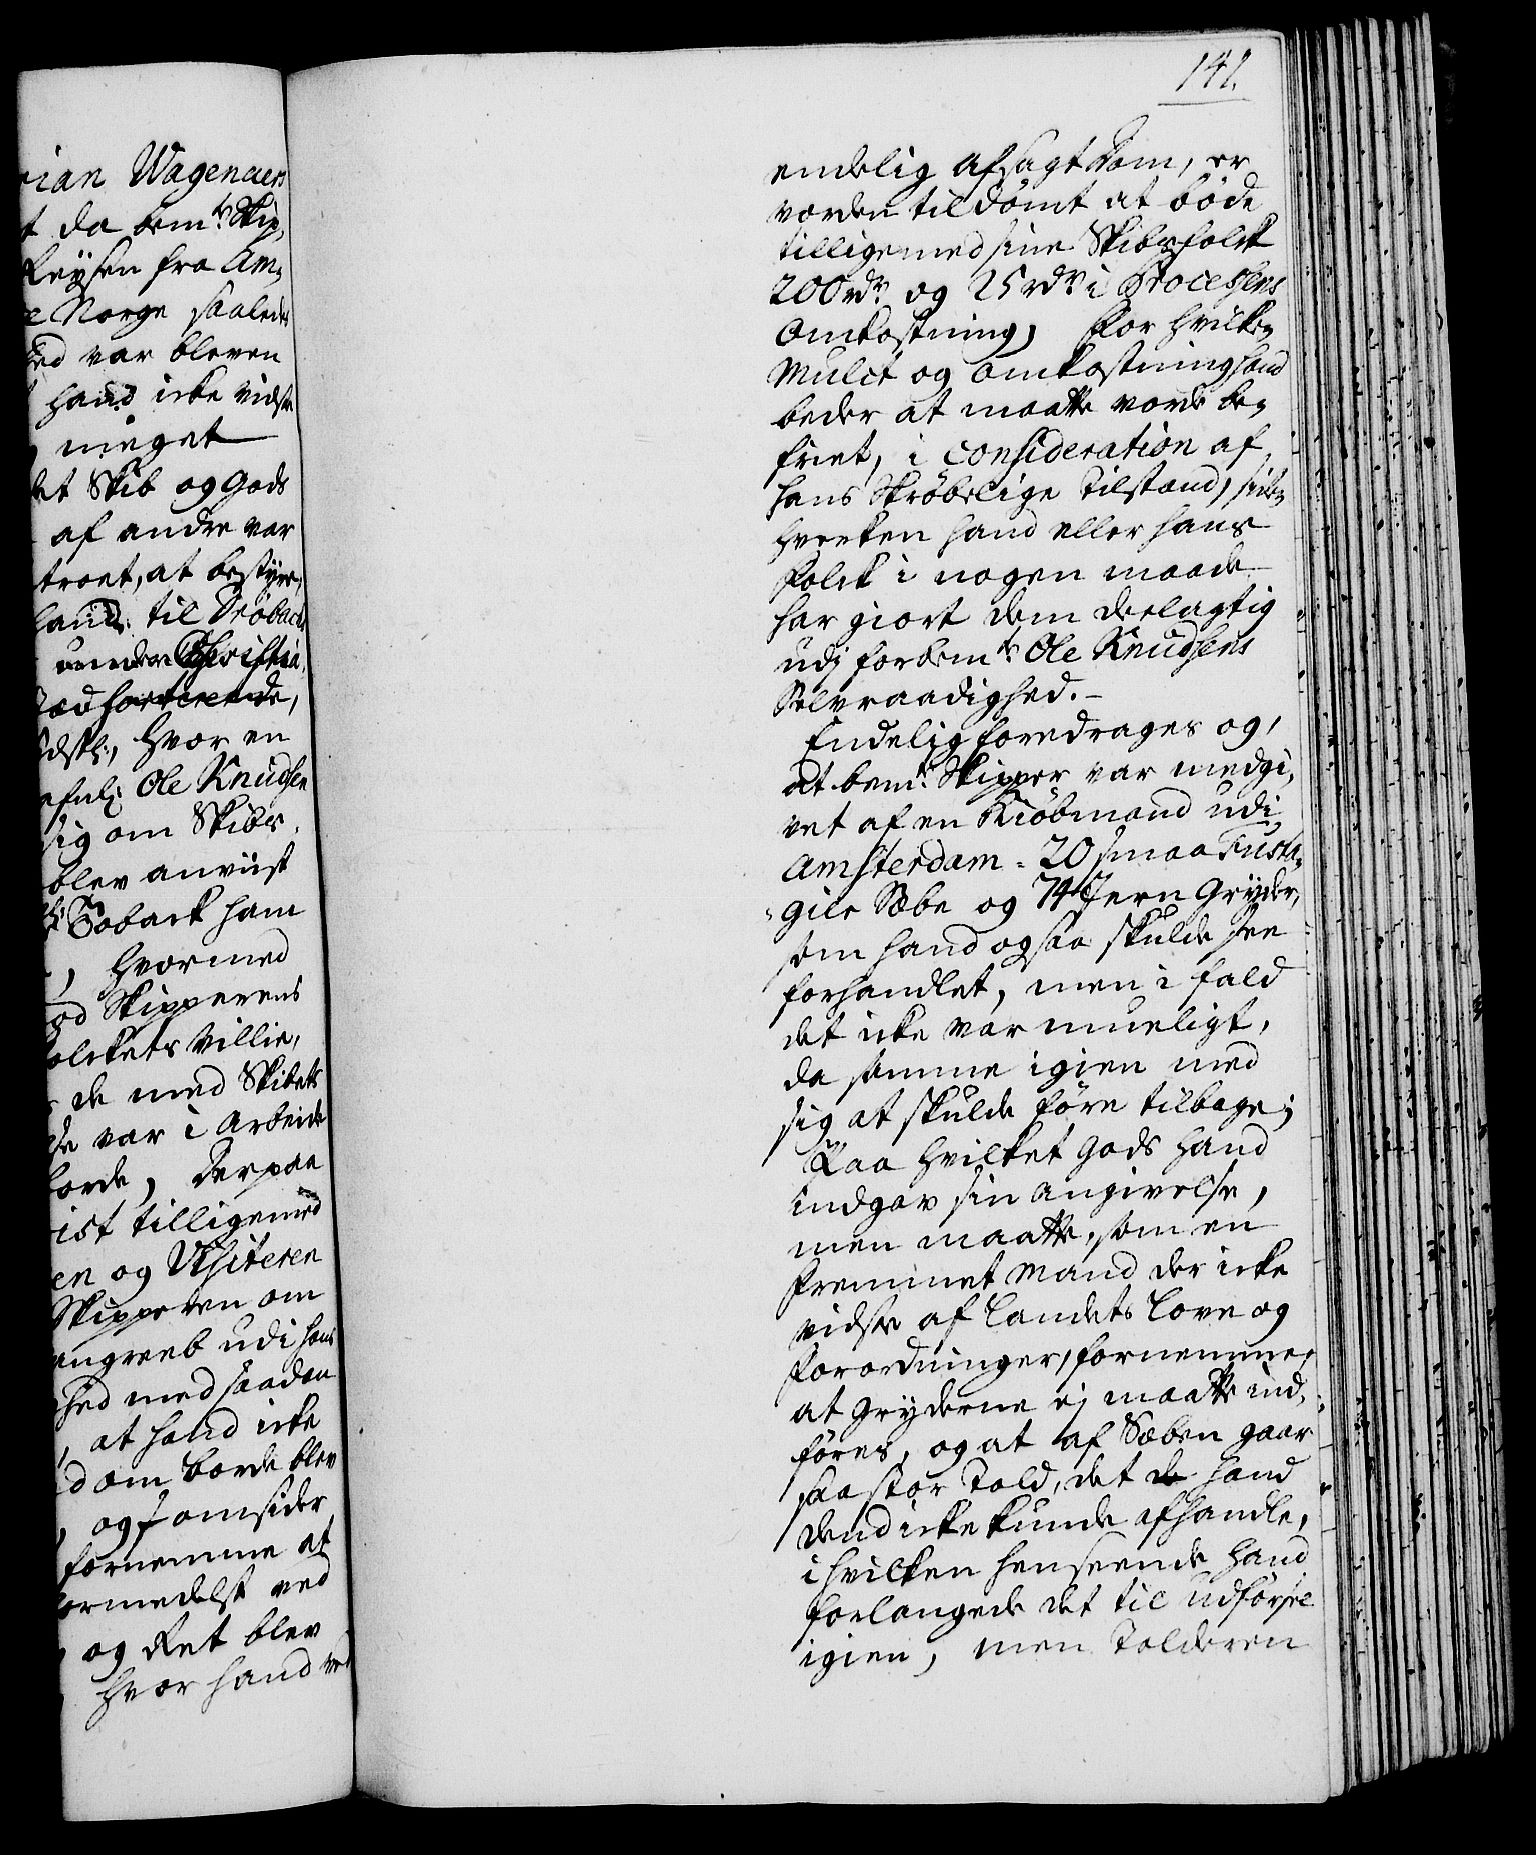 141.
rian Wagenaers
t da bemte Skip-
Reysen fra Am-
e Norge saaledes
hed var bleven
hand icke vidste
meget
det Skib og Gods
af andre var
troet, at bestyre,
hand til Drøback
under Christia-
hvor en
Ole Knudsen
sig om Skibs
blev anviist
Soback ham
, hvormed
od Skipperens
olckets villie,
de med Skibets
de var i Arbeide
borde, Derpaa
ist tilligemed
en og Visiteren
Skipperen om
angreeb udi hans
hed med saadan
, at hand icke
d om borde blev
, og omsider
fornemme at
formedelst ved
og Ret blev
hvor hand ved
endelig afsagt Dom, er
vorden tildømt at bøde
tilligemed sine Skibsfolck
200 rdr. og 25 rdr. i Processens
Omkostning, For hvilken
Mulct og omkostning hand
beder at maatte vorde be-
friet, i consideration af
hans Skrøbelige Tilstand, siden
hverken hand eller hans
Folck i nogen maade
har giort dem deelagtig
udj forbemte Ole Knudsens
Selvraadighed.-
Endelig foredrages og,
at bemte Skipper var medgi-
vet af en Kiøbmand udi
Amsterdam = 20 smaa Fusta-
gier Sæbe og 74 Jern Gryder,
som hand ogsaa skulde see
forhandlet, men i fald
det icke var mueligt,
da samme igien med
sig at skulde føre tilbage;
Paa hvilket Gods hand
indgav sin angivelse,
men maatte, som en
fremmet Mand der icke
vidste af Landets Love og
Forordninger, fornemme,
at Gryderne ej maatte ind-
føres, og at af Sæben gaar
saa stor Told, det de hand
dend icke kunde afhandle,
i hvilken henseende hand
forlangede det til udførsel
igien, men Tolderen